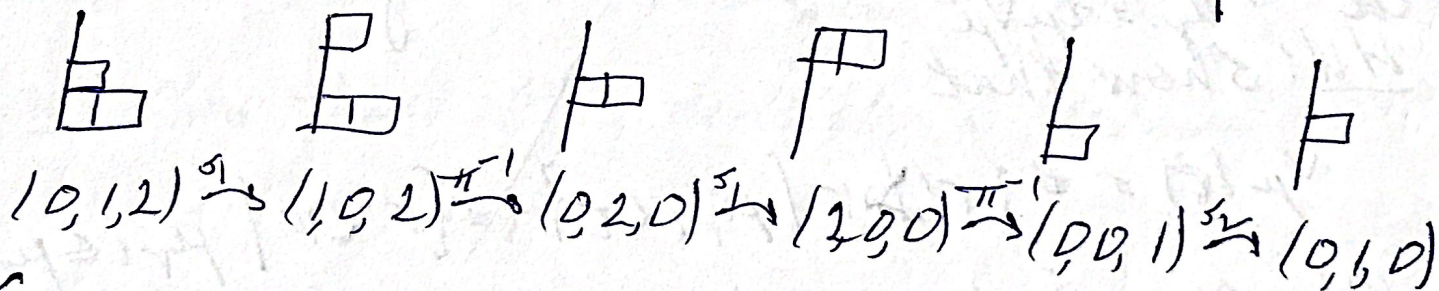 (0,1,2) s₁→ (1,0,2) π⁻¹→ (0,2,0) s₁→ (2,0,0) π⁻¹→ (0,0,1) s₂→ (0,1,0)